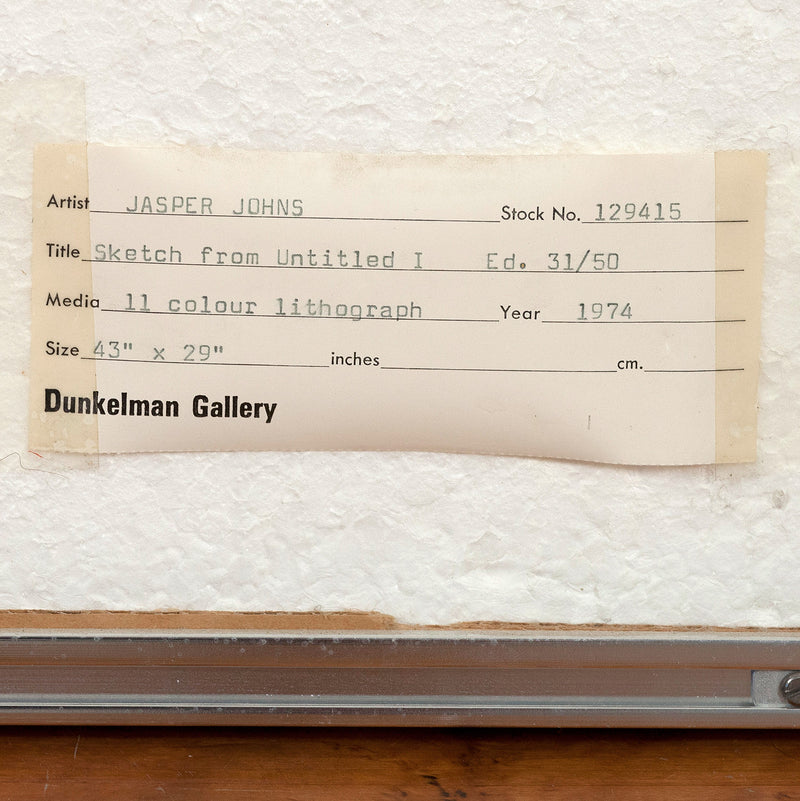 Artist JASPER JOHNS Stock No. 129415
Title Sketch from Untitled I Ed. 31/50
Media 11 colour lithograph Year 1974
Size 43" x 29" inches cm.
Dunkelman Gallery